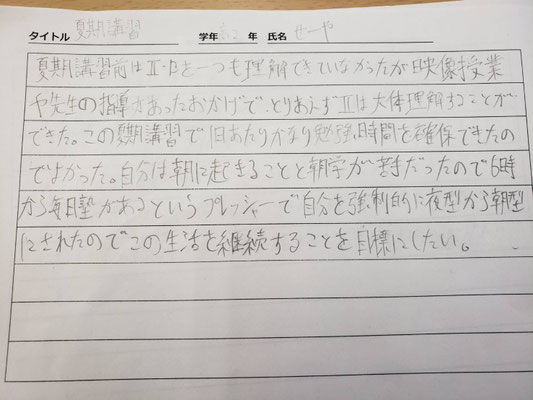 タイトル 夏期講習 学年 高2 年 氏名 せーや
夏期講習前はⅡ・Bを一つも理解できていなかったが映像授業
や先生の指導があったおかげで、とりあえずⅡは大体理解することが
できた。この夏期講習で1日あたりかなり勉強時間を確保できたの
でよかった。自分は朝に起きることと朝学が苦手だったので6時
から毎日塾があるというプレッシャーで自分を強制的に夜型から朝型
にされたのでこの生活を継続することを目標にしたい。